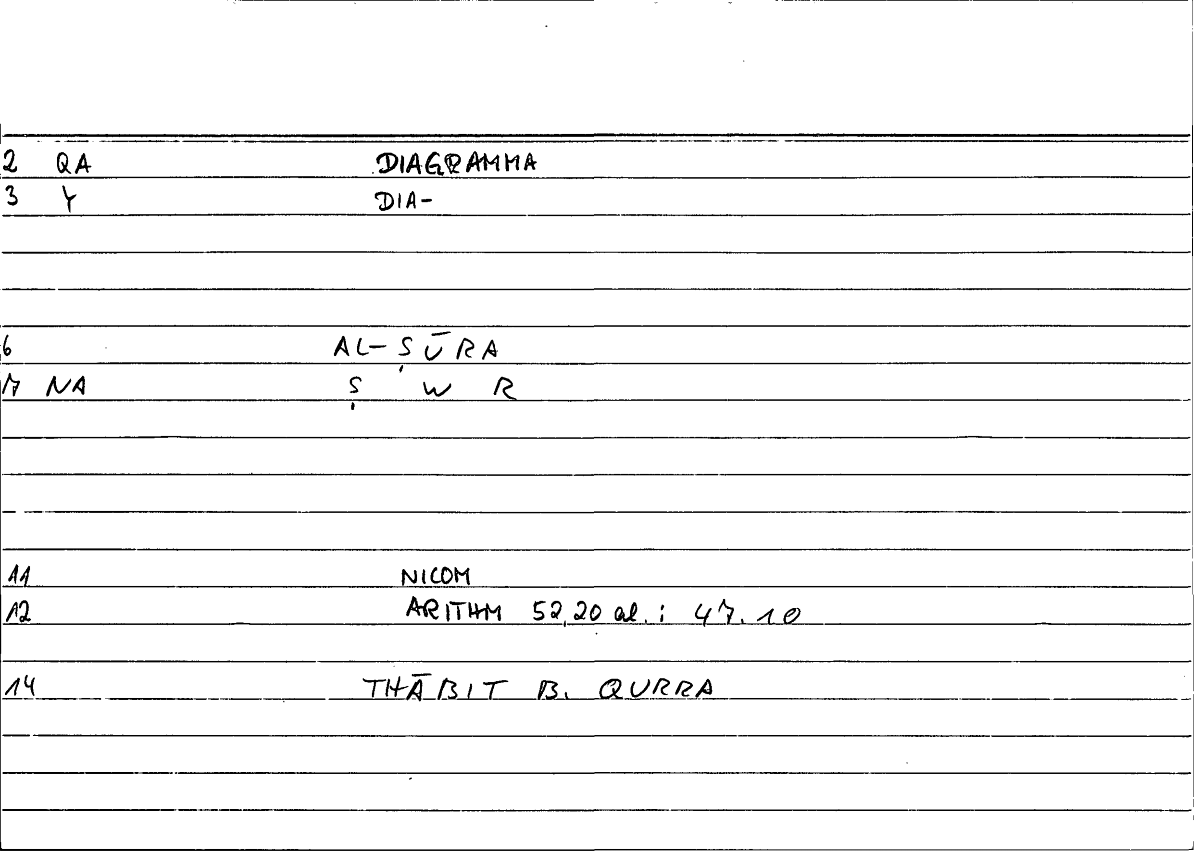 2 QA DIAGRAMMA
3 Y DIA-
6 AL-ṢŪRA
7 NA Ṣ W R
11 NICOM
12 ARITHM 52,20 al. ; 47.10
14 THĀBIT B. QURRA